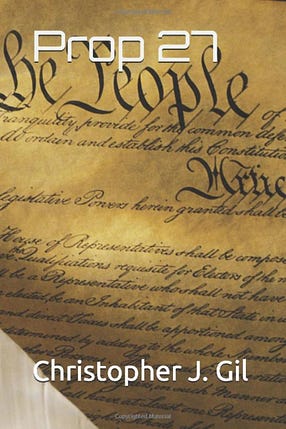 Prop 27
he People of
tranquility, provide for the common defen
and establish this Constitution
Artic
Legislative Powers herein granted shall be
House of Representatives shall be compos
Qualifications requisite for Electors of the m
be a Representative who shall not have
elected, be an Inhabitant of that State in
and direct Taxes shall be apportioned among
determined by adding to the whole
Christopher J. Gil
Copyrighted Material